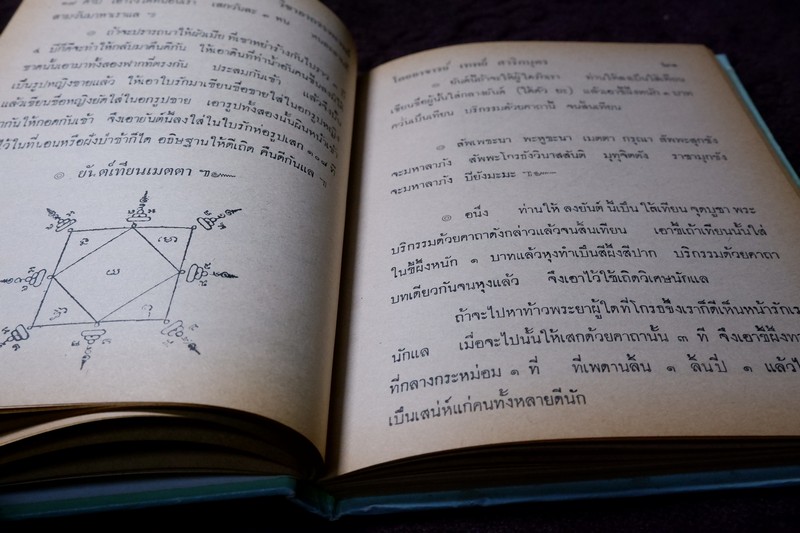 ๏ ถ้าจะปรารถนาให้ผัวเมีย ที่เขาหย่าร้างกันไปราว
๔ ปีก็ดีจะทำให้กลับมาคืนดีกัน ให้เอาดินที่
ขาดนั้นเอามาทั้งสองฟากที่ตรงกัน ประสมกันเข้า แล้วจึงปั้น
เป็นรูปหญิงชายแล้ว ให้เอาใบรักมาเขียนชื่อชายใส่ในอกรูปหญิง
แล้วเขียนชื่อหญิงยัดใส่ในอกรูปชาย เอารูปทั้งสองนั้นผินหน้าเข้า
กันให้กอดกันเข้า จึงเอายันต์นี้ลงใส่ในใบรักห่อรูปเสก ๑๐๘ ที
ไว้ในที่นอนหรือฝังป่าช้าก็ได้ อธิษฐานให้ดีเถิด คืนดีกันแล ฯ
๏ ยันต์เทียนเมตตา ฯ
โดยอาจารย์ เทพย์ สาริกบุตร
๏ ยันต์นี้ถ้าจะให้ผู้ใดรักเรา ท่านให้ลงเป็นไส้เทียน
เขียนชื่อผู้นั้นใส่กลางยันต์ แล้วเอาขี้ผึ้งหนัก ๑ บาท
ควั่นเป็นเทียน บริกรรมด้วยคาถานี้ จนสิ้นเทียน
๏ สัพเพชะนา พะหูชะนา เมตตา กรุณา สัพพะสุกขัง
จะมหาลาภัง สัพพะโกรธังวินาสสันติ มุทุจิตตัง ราชามุกขัง
จะมหาลาภัง ปิยังมะมะ ฯ
๏ อนึ่ง ท่านให้ ลงยันต์ นี้เป็น ไส้เทียน จุดบูชา พระ
บริกรรมด้วยคาถาดังกล่าวแล้วจนสิ้นเทียน เอาขี้เถ้าเทียนนั้นใส่
ในขี้ผึ้งหนัก ๑ บาทแล้วหุงทำเป็นสีผึ้งสีปาก บริกรรมด้วยคาถา
บทเดียวกันจนหุงแล้ว จึงเอาไว้ใช้เถิดวิเศษนักแล
ถ้าจะไปหาท้าวพระยาผู้ใดที่โกรธขึ้งเราก็ดีเห็นหน้ารักเรา
นักแล เมื่อจะไปนั้นให้เสกด้วยคาถานั้น ๓ ที จึงเอาขี้ผึ้งทา
ที่กลางกระหม่อม ๑ ที่ ที่เพดานลิ้น ๑ ลิ้นปี่ ๑ แล้วไป
เป็นเสน่ห์แก่คนทั้งหลายดีนัก